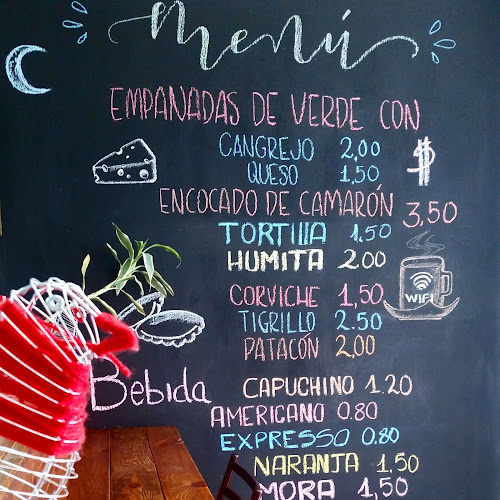 Menú
EMPANADAS DE VERDE CON
CANGREJO 2,00
QUESO 1,50
$
ENCOCADO DE CAMARÓN 3,50
TORTILLA 1.50
HUMITA 2.00
WIFI
CORVICHE 1,50
TIGRILLO 2.50
PATACÓN 2,00
Bebida CAPUCHINO 1.20
AMERICANO 0.80
EXPRESSO 0.80
NARANJA 1,50
MORA 1,50